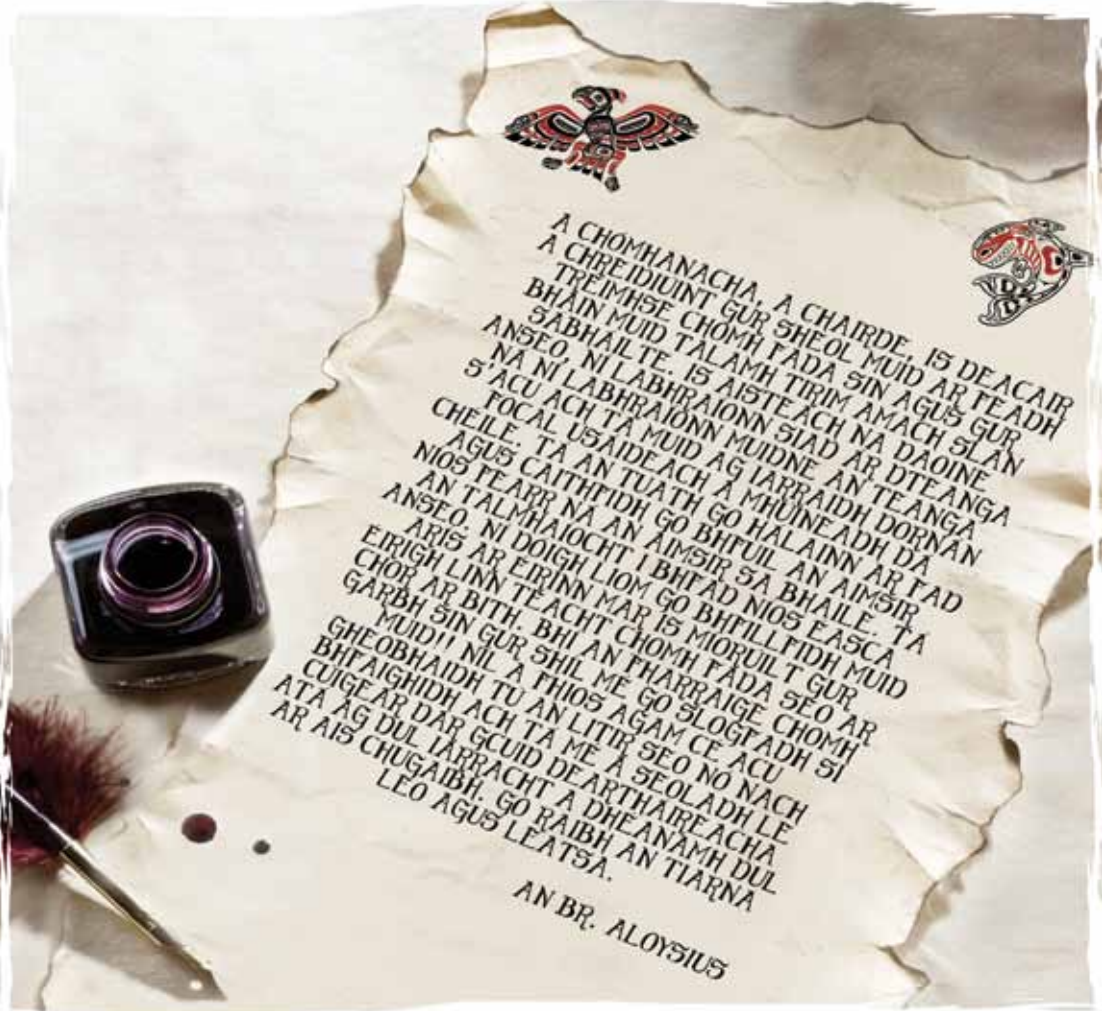 A CHOMHANACHA, A CHAIRDE, IS DEACAIR
A CHREIDIUINT GUR SHEOL MUID AR FEADH
TREIMHSE CHOMH FADA SIN AGUS GUR
BHAIN MUID TALAMH TIRIM AMACH SLAN
SABHAILTE. IS AISTEACH NA DAOINE
ANSEO, NI LABHRAIONN SIAD AR DTEANGA
NA NI LABHRAIONN MUIDNE AN TEANGA
S'ACU ACH TA MUID AG IARRAIDH DORNAN
FOCAL USAIDEACH A MHUINEADH DA
CHEILE. TA AN TUATH GO HALAINN AR FAD
AGUS CAITHFIDH GO BHFUIL AN AIMSIR
NIOS FEARR NA AN AIMSIR SA BHAILE. TA
AN TALMHAIOCHT I BHFAD NIOS EASCA
ANSEO. NI DOIGH LIOM GO BHFILLFIDH MUID
ARIS AR EIRINN MAR IS MIORUIL T GUR
EIRIGH LINN TEACHT CHOMH FADA SEO AR
CHOR AR BITH. BHI AN FHARRAIGE CHOMH
GARBH SIN GUR SHIL ME GO SLOGFADH SI
MUID!! NIL A FHIOS AGAM CE ACU
GHEOBHAIDH TU AN LITIR SEO NO NACH
BHFAIGHIDH ACH TA ME A SEOLADH LE
CUIGEAR DAR GCUID DEARTHAIREACHA
ATA AG DUL IARRACHT A DHEANAMH DUL
AR AIS CHUGAIBH. GO RAIBH AN TIARNA
LEO AGUS LEATSA.
AN BR. ALOYSIUS